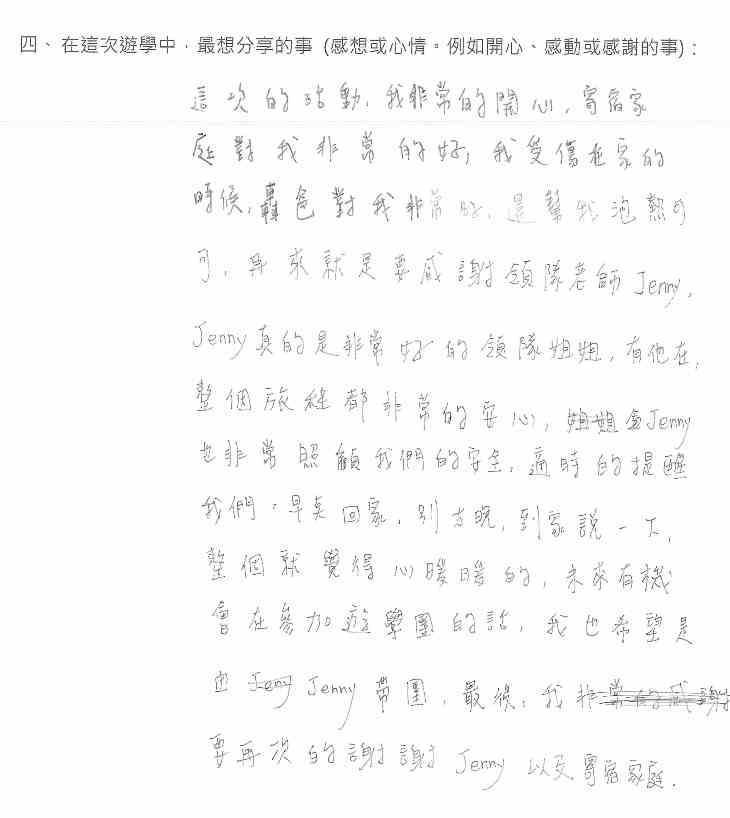 四、在這次遊學中，最想分享的事 (感想或心情。例如開心、感動或感謝的事)：
這次的活動，我非常的開心，寄宿家
庭對我非常的好，我受傷在家的
時候，轟爸對我非常好，還幫我泡熱可
可，再來就是要感謝領隊老師Jenny，
Jenny真的是非常好的領隊姐姐，有他在，
整個旅程都非常的安心，姐姐Jenny
也非常照顧我們的安全，適時的提醒
我們，早點回家，別太晚，到家說一下，
整個就覺得心暖暖的，未來有機
會在參加遊學團的話，我也希望是
由 Jeny Jenny 帶團，最後，我非常的感謝
要再次的謝謝 Jenny 以及寄宿家庭.